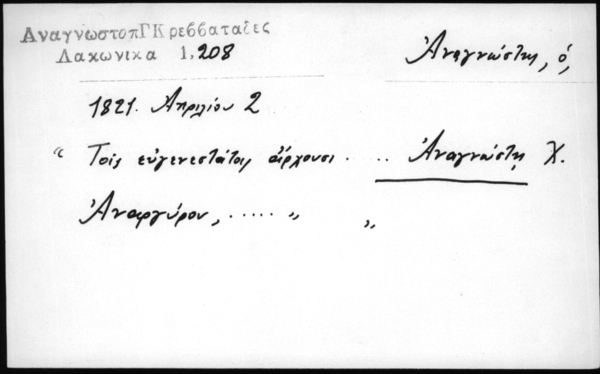 ΑναγνωστοπΓΚρεββαταδες
Λακωνικα 1,208
Ἀναγνώστης, ὁ,
1821. Ἀπριλίου 2
“ Τοῖς εὐγενεστάτοις ἄρχουσι ..... Ἀναγνώστῃ Χ.
Ἀναργύρου, ..... " "